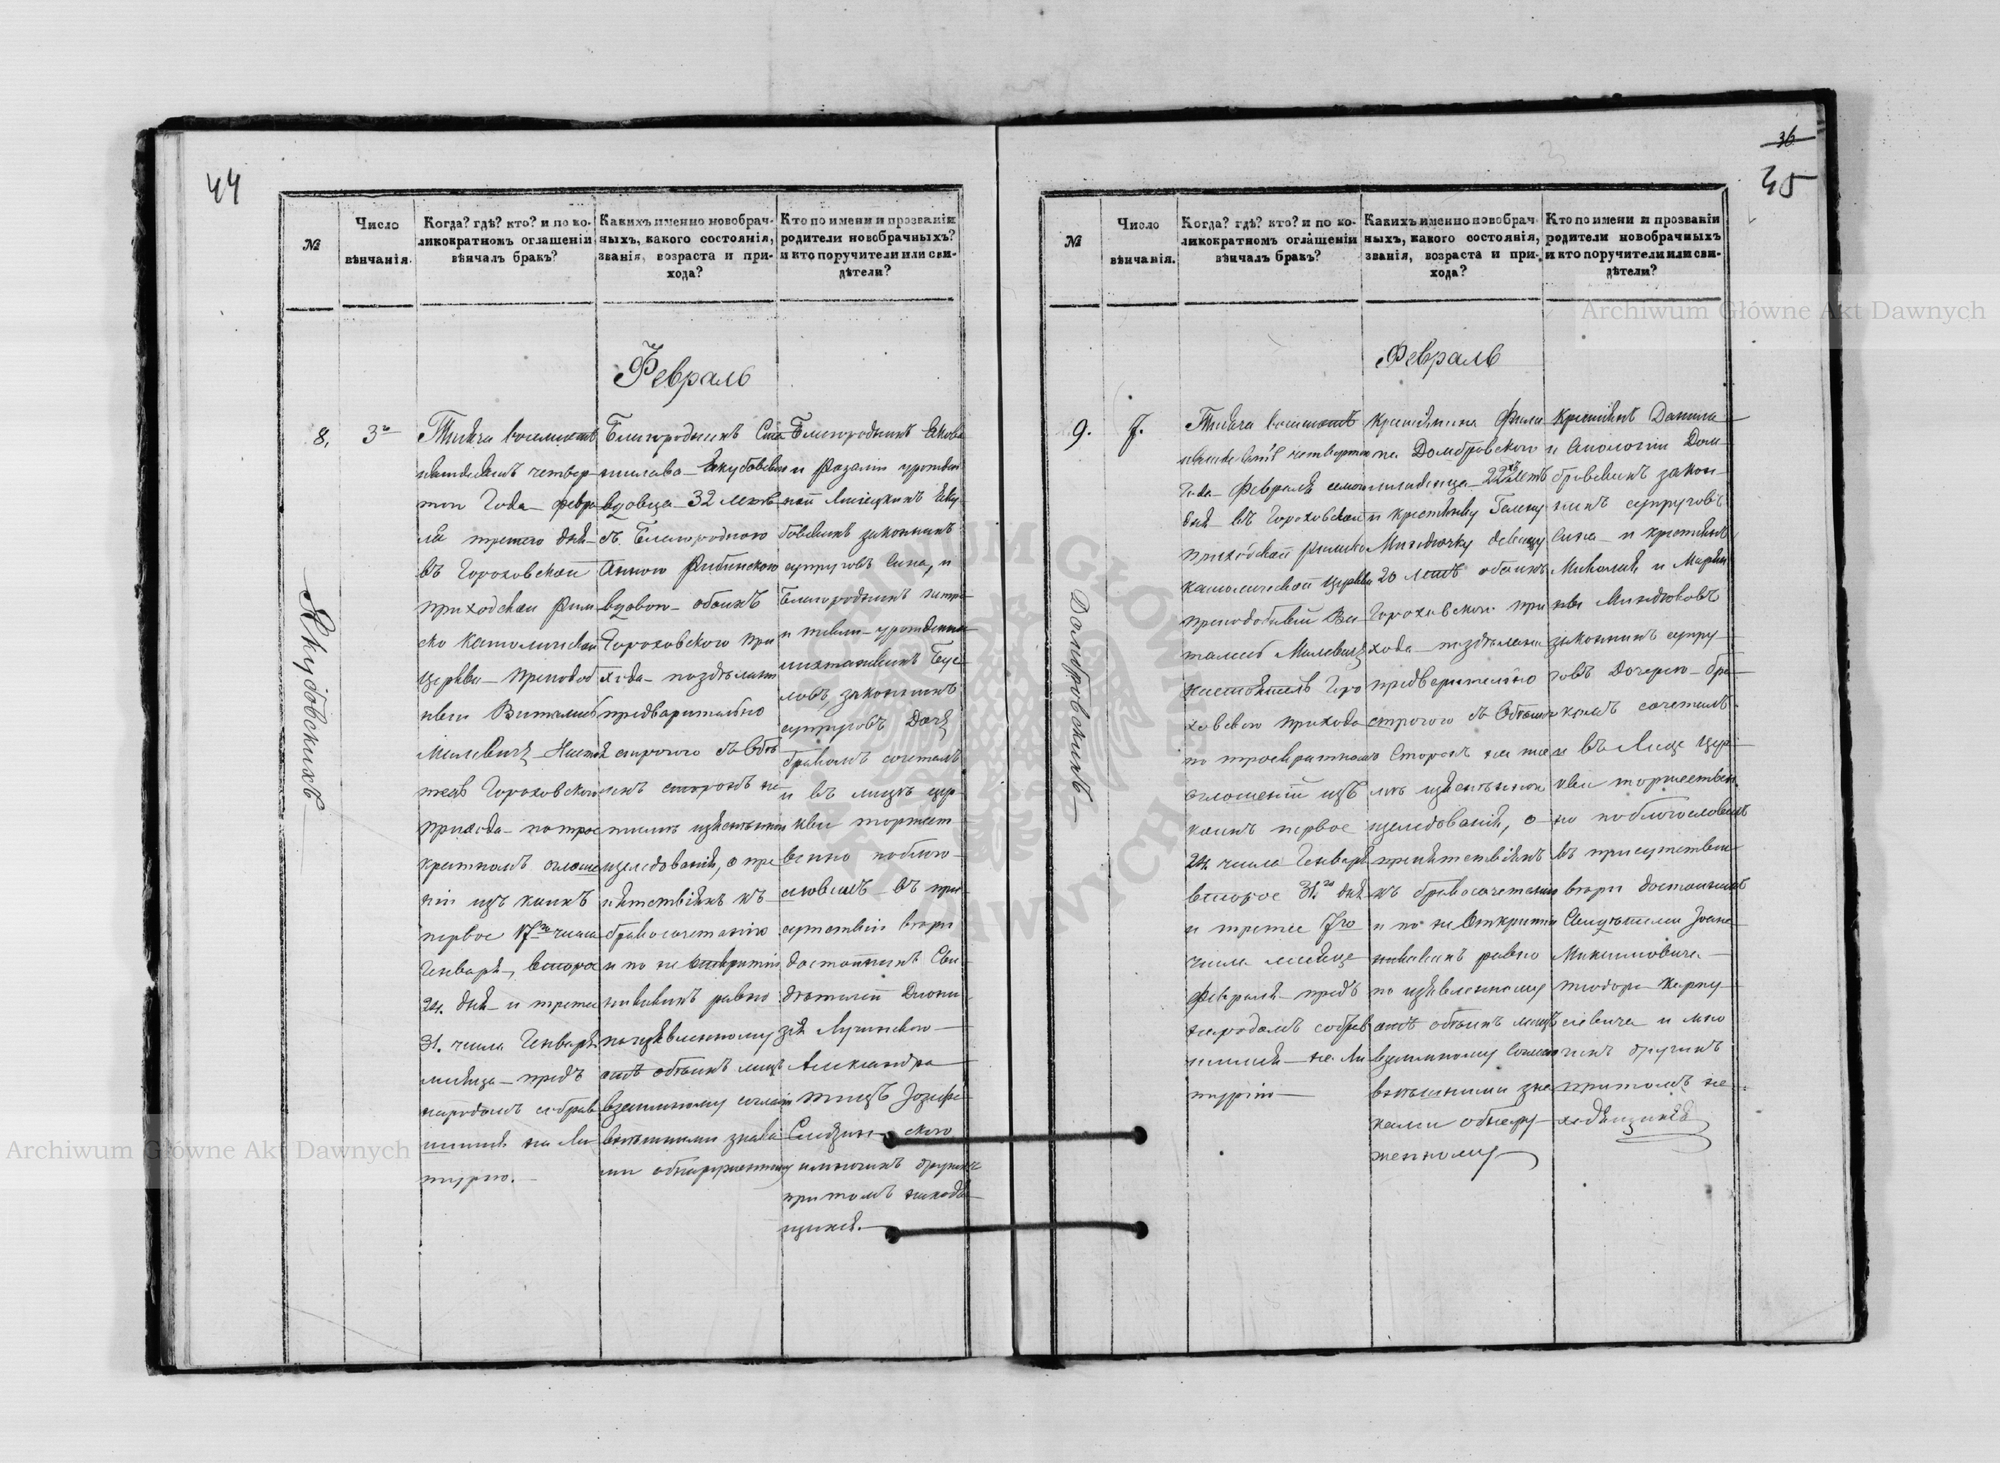 44
№
Число
вѣнчанія.
Когда? гдѣ? кто? и по ко-
ликократномъ оглашеніи
вѣнчалъ бракъ?
Какихъ именно новобрач-
ныхъ, какого состоянія,
званія, возраста и при-
хода?
Кто по имени и прозванію
родители новобрачныхъ?
и кто поручители или сви-
дѣтели?
Февраль
8.
3го
Якубовскихъ
Тысяча восемьсотъ
четвер-
того Года февра
ля третего дня
въ Гороховской
приходской Рим
ско Католической
церкви Преподоб
ный Виталисъ
Милевичъ Насто
тель Гороховского
прихода по трое
кратномъ оглаше
ніи изъ коихъ
первое 17го числа
Генваря, второе
24. дня и третее
31. числа Генваря
месяца предъ
народомъ собрав
шимся на Ли
тургію.
Благородныхъ Ста
нислава Якубовскаго
вдовца 32 летъ
съ Благородною
Анною Рибинскою
вдовою обоихъ
Гороховского при
хода по здѣланіи
предварительно
строгого съ Обѣ
ихъ сторонъ на
изысканіи, о пре
пятствіяхъ къ
бракосочетанію
и по не открытіи
никакихъ равно
по изъявленному
отъ обоихъ лицъ
взаимному согласію
внѣшними знака
ми обнаруженному
Благородныхъ Якова
и Розаліи урожден
ной Липецкихъ Яку
бовскихъ законныхъ
супруговъ Сына, и
Благородныхъ Петра
и Теклы урожденной
законныхъ
супруговъ Дочь
бракомъ сочеталъ
и въ лицѣ цер
кви торжест-
венно поблаго-
словилъ въ при
сутствіи вѣры
достойныхъ Сви
дѣтелей Діони
зія Лучинского
Александра
Іозефа
Следзинского
и многихъ другихъ
при томъ находя
щихся.
36
45
№
Число
вѣнчанія.
Когда? гдѣ? кто? и по ко-
ликократномъ оглашеніи
вѣнчалъ бракъ?
Какихъ именно новобрач-
ныхъ, какого состоянія,
званія, возраста и при-
хода?
Кто по имени и прозваніи
родители новобрачныхъ
и кто поручители или сви-
дѣтели?
Февраль
9.
7.
Домбровскихъ
Тысяча восемьсотъ
четвертого
Года Февраля семого
дня въ Гороховской
приходской Римско
католической церкви
преподобный Ви
талисъ Милевичъ
настоятель Горо
ховского прихода
по троекратномъ
оглашеніи изъ
коихъ первое
24. числа Генваря
второе 31.го дня
и третее 7го
числа месяца
Февраля предъ
народомъ собрав
шимся на Ли
тургію
Крестьянина Фили
па Домбровского
молодца 22хъ летъ
и крестьянку Гелену
Мигдючку девицу
20 летъ обоихъ
Гороховского при
хода по здѣланіи
предварительно
строгого съ Обоихъ
Сторонъ на
изысканіи
изследованія, о
препятствіяхъ
къ бракосочетанію
и по не Открытіи
никакихъ равно
по изъявленному
отъ обоихъ лицъ
взаимному Согласію
внѣшними зна
ками обнару
женному
Крестьянъ Данила
и Апологіи Дом
бровскихъ закон-
ныхъ супруговъ
Сына и крестьянъ
Николая и Марьян
ны Мигдюковъ
законныхъ супру
говъ Дочерью бра-
комъ сочеталъ
и въ Лице Цер
кви торжествен
но поблагословилъ
въ присутствіи
вѣры достойныхъ
Свидѣтелей Іоана
Максимовича
Теодора Карпу
севича и мно
гихъ другихъ
притомъ на-
ходящихся
Archiwum Główne Akt Dawnych
Archiwum Główne Akt Dawnych